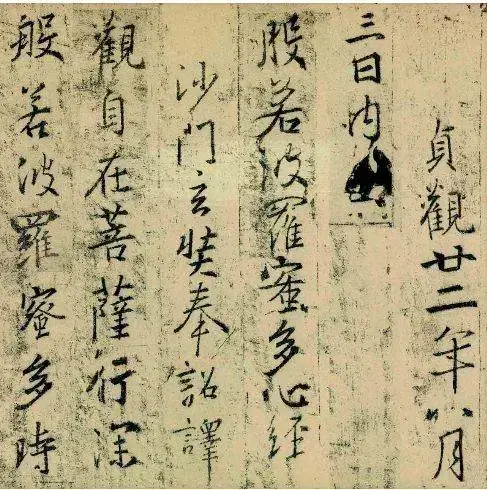 貞觀廿二年八月
三日内出
般若波羅蜜多心經
沙門玄奘奉詔譯
觀自在菩薩行深
般若波羅蜜多時